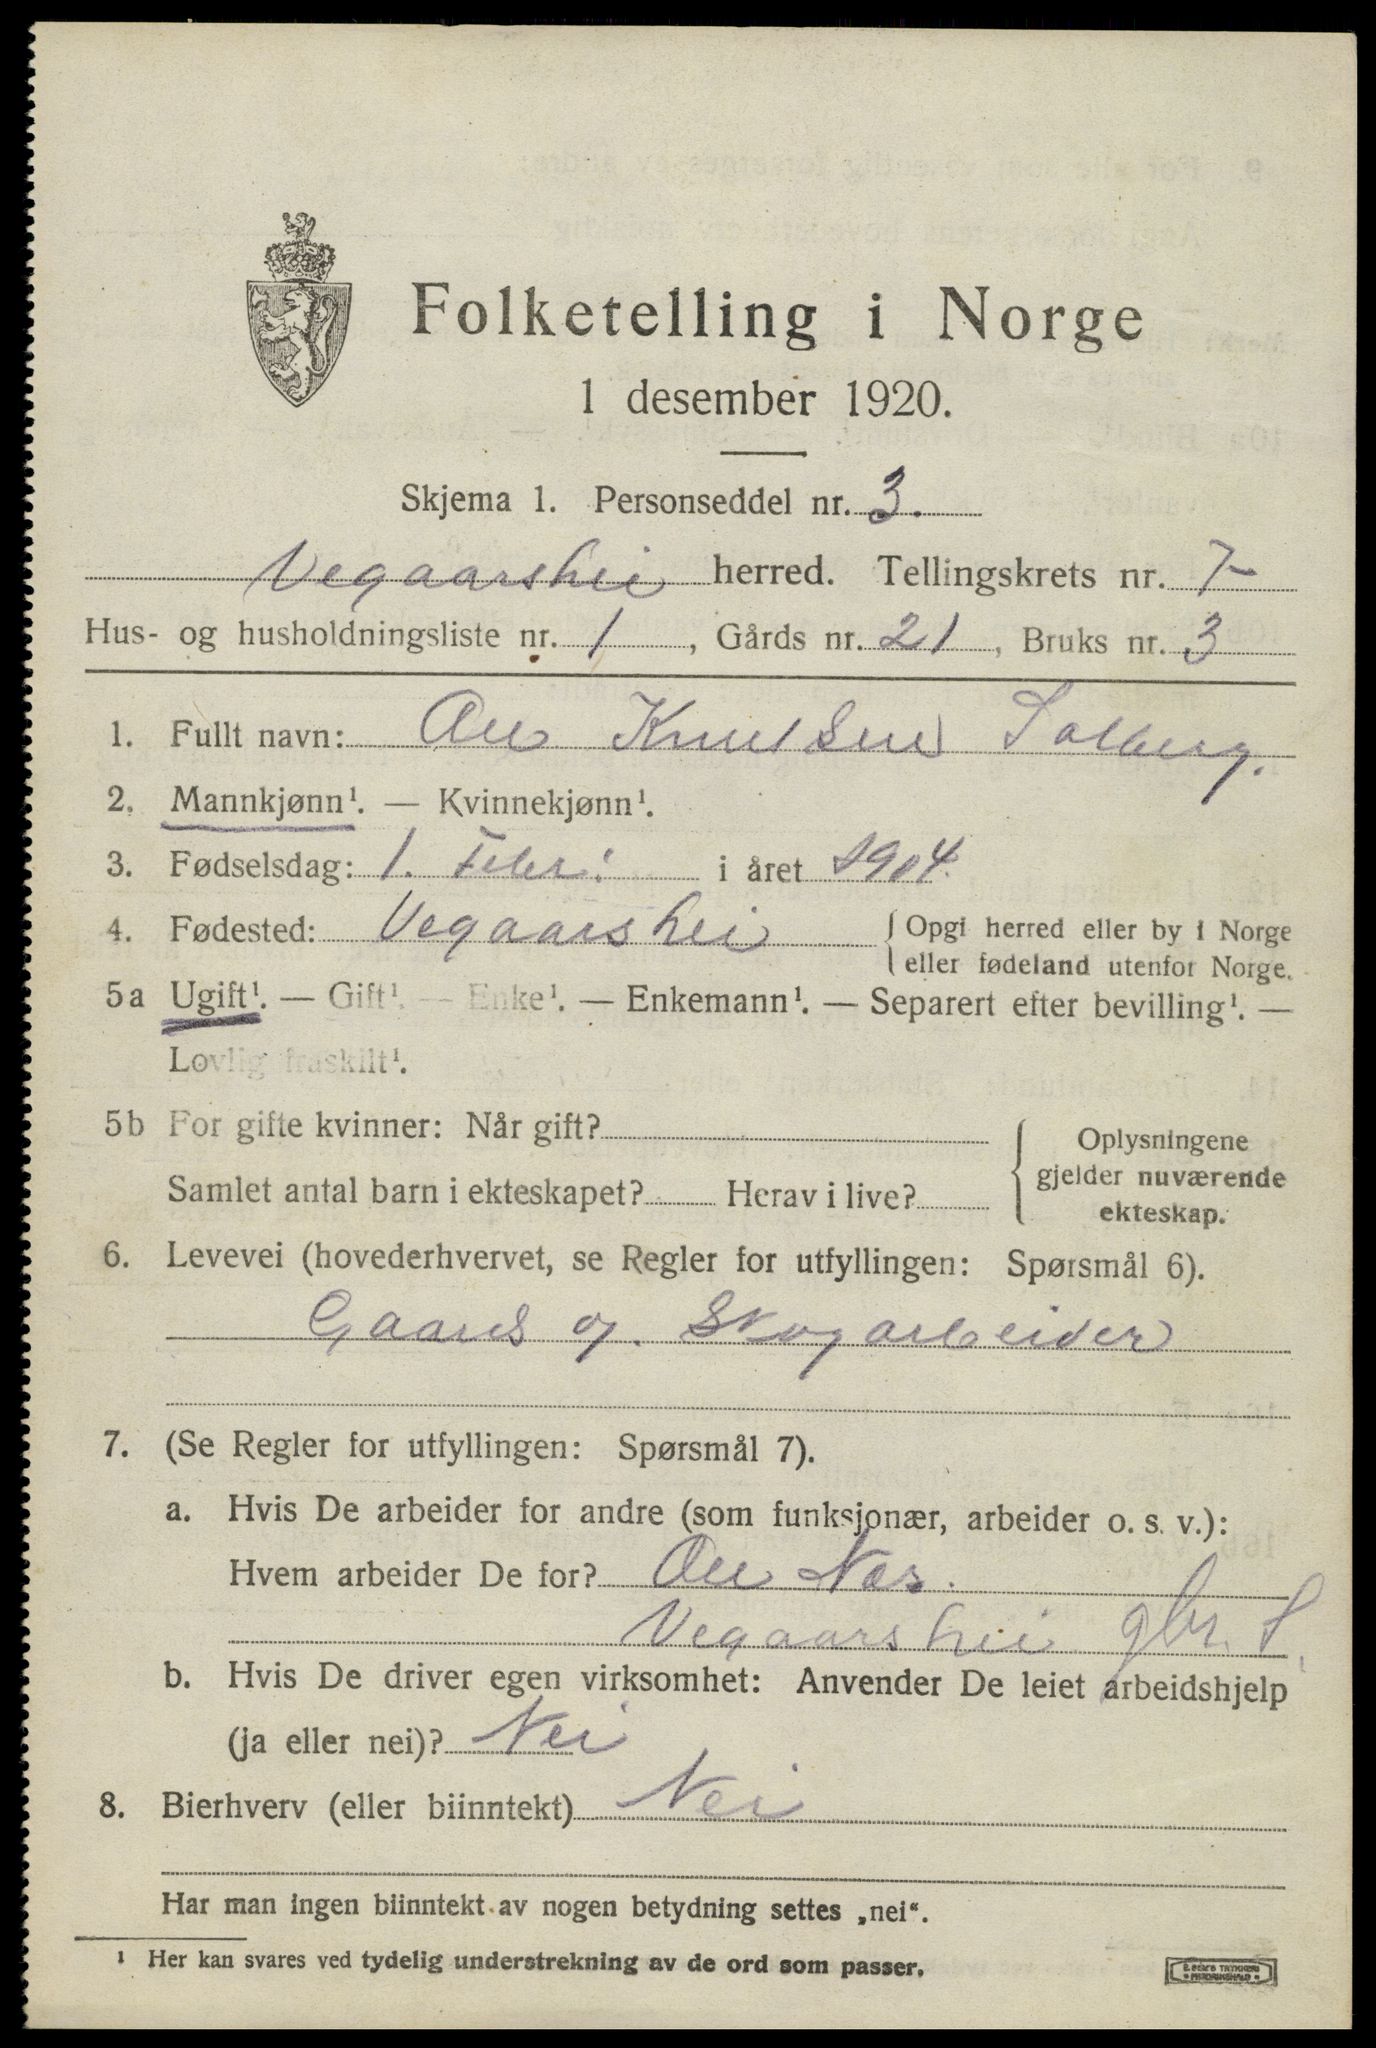 Folketelling i Norge
1 desember 1920.
Skjema 1. Personseddel nr. 3.
Vegaarshei herred. Tellingskrets nr. 7
Hus- og husholdningsliste nr. 1, Gårds nr. 21, Bruks nr. 3
1. Fullt navn: Knutsen Solberg.
2. Mannkjønn¹. — Kvinnekjønn¹.
3. Fødselsdag: 1. Febr. i året 1904.
4. Fødested: Vegaarshei {Opgi herred eller by i Norge
eller fødeland utenfor Norge.
5a Ugift¹. — Gift¹. — Enke¹. — Enkemann¹. — Separert efter bevilling¹. —
Lovlig fraskilt¹.
5b For gifte kvinner: Når gift?
Samlet antal barn i ekteskapet? Herav i live?
Oplysningene
gjelder nuværende
ekteskap.
6. Levevei (hovederhvervet, se Regler for utfyllingen: Spørsmål 6).
Gaards og. Skogarbeider
7. (Se Regler for utfyllingen: Spørsmål 7).
a. Hvis De arbeider for andre (som funksjonær, arbeider o. s. v.):
Hvem arbeider De for? Nes.
Vegaarshei gbr.
b. Hvis De driver egen virksomhet: Anvender De leiet arbeidshjelp
(ja eller nei)? Nei
8. Bierhverv (eller biinntekt) Nei
Har man ingen biinntekt av nogen betydning settes „nei“.
¹ Her kan svares ved tydelig understrekning av de ord som passer.